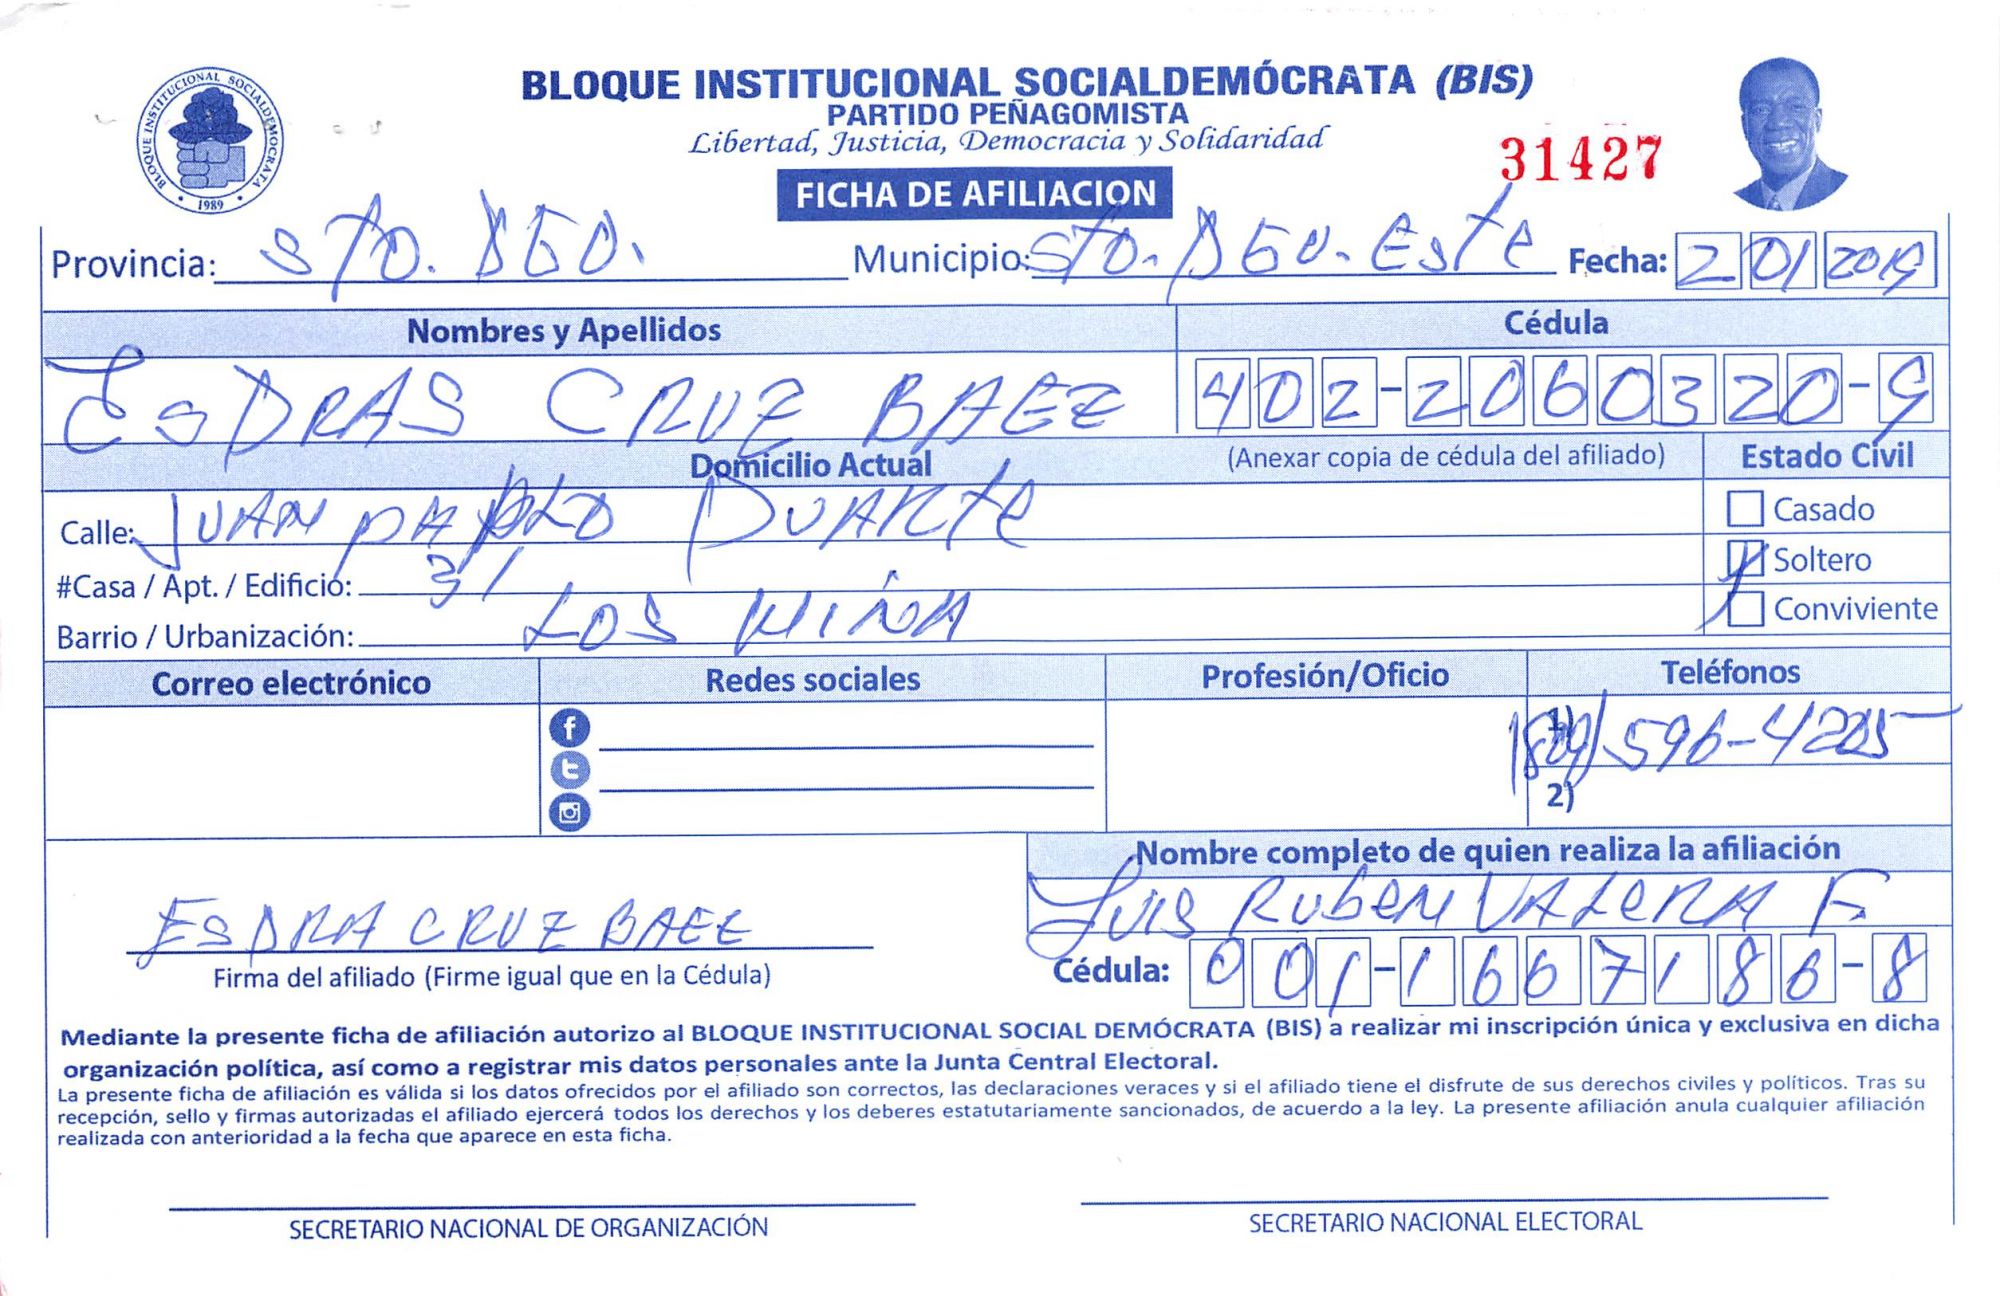 BLOQUE INSTITUCIONAL SOCIALDEMOCRATA
1989
BLOQUE INSTITUCIONAL SOCIALDEMÓCRATA (BIS)
PARTIDO PEÑAGOMISTA
Libertad, Justicia, Democracia y Solidaridad
31427
FICHA DE AFILIACION
Provincia: Sto. DGO. Municipio: Sto. DGO. Este Fecha: 2 01 2019
Nombres y Apellidos Cédula
ESDRAS CRUZ BAEZ 402-2060320-9
Domicilio Actual (Anexar copia de cédula del afiliado) Estado Civil
Calle: JUAN PABLO DUARTE Casado
#Casa / Apt. / Edificio: 31 Soltero
Barrio / Urbanización: LOS MINA Conviviente
Correo electrónico Redes sociales Profesión/Oficio Teléfonos
1) (809) 596-4205
2)
Nombre completo de quien realiza la afiliación
LUIS RUBEN VALERA F.
ESDRA CRUZ BAEZ
Firma del afiliado (Firme igual que en la Cédula) Cédula: 001-1667186-8
Mediante la presente ficha de afiliación autorizo al BLOQUE INSTITUCIONAL SOCIAL DEMÓCRATA (BIS) a realizar mi inscripción única y exclusiva en dicha
organización política, así como a registrar mis datos personales ante la Junta Central Electoral.
La presente ficha de afiliación es válida si los datos ofrecidos por el afiliado son correctos, las declaraciones veraces y si el afiliado tiene el disfrute de sus derechos civiles y políticos. Tras su
recepción, sello y firmas autorizadas el afiliado ejercerá todos los derechos y los deberes estatutariamente sancionados, de acuerdo a la ley. La presente afiliación anula cualquier afiliación
realizada con anterioridad a la fecha que aparece en esta ficha.
SECRETARIO NACIONAL DE ORGANIZACIÓN SECRETARIO NACIONAL ELECTORAL